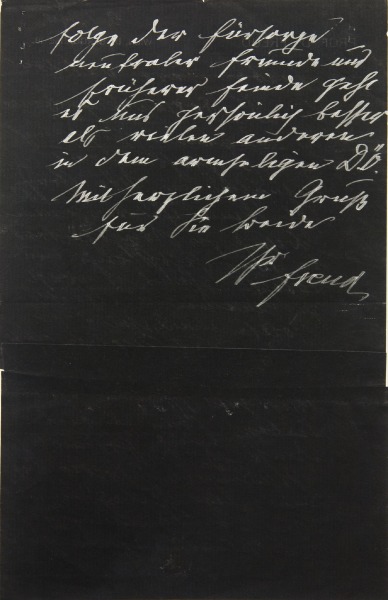 folge der Fürsorge
neutraler Freunde und
früherer Feinde geht
es uns persönlich besser
als vielen anderen
in dem armseligen D.Ö.
Mit herzlichem Gruß
für Sie beide
Ihr Freud